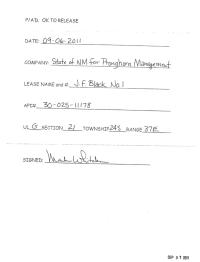 P/A'D. OK TO RELEASE
DATE: 09-06-2011
COMPANY: State of NM for Pronghorn Management
LEASE NAME and #. J.F. Black No 1
API# 30-025-11178
UL G SECTION 21 TOWNSHIP 24S RANGE 37E
SIGNED: Mark Whitaker
SEP 07 2011